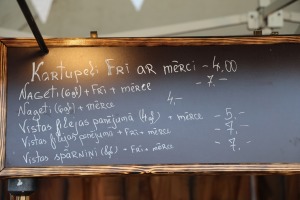 Kartupeļi FRĪ AR mērci - 4,00
NAGETI (6gb) + FRī + mērce - 7.-
Nageti (6gb) + mērce 4,-
Vistas filejas panējumā (4gb) + mērce - 5.-
Vistas filejas panējumā + FRī + mērce - 7.-
Vistas spārniņi (6gb) + FRī + mērce - 7.-